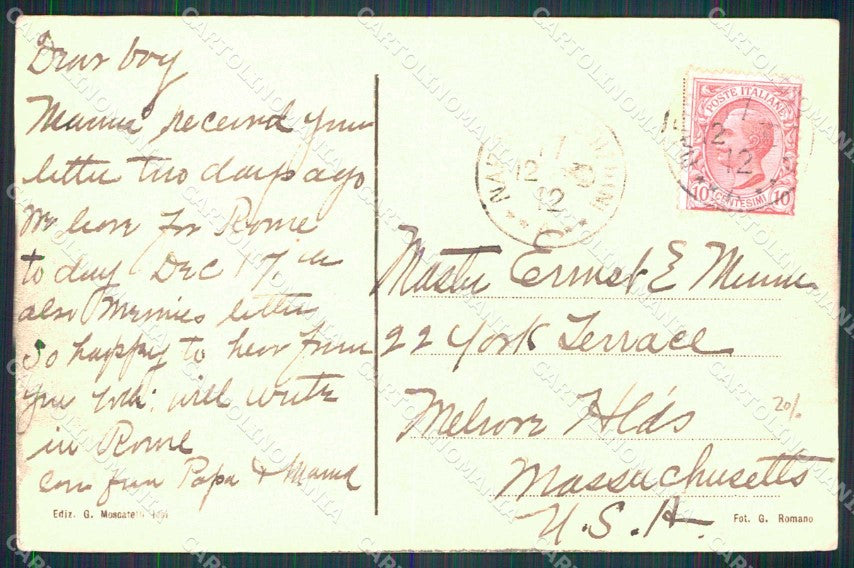 Dear boy
Mama received your
letter two days ago
We leave for Rome
to day Dec 17th
also Minnies letter
So happy to hear from
you both: will write
in Rome
from Papa & Mama
Ediz. G. Moscatelli
POSTE ITALIANE
10 CENTESIMI 10
17
12
12
Master Ernest E Munn
22 York Terrace
Melrose Hlds
Massachusetts
U.S.A.
20%
Fot. G. Romano
CARTOLINOMANIA